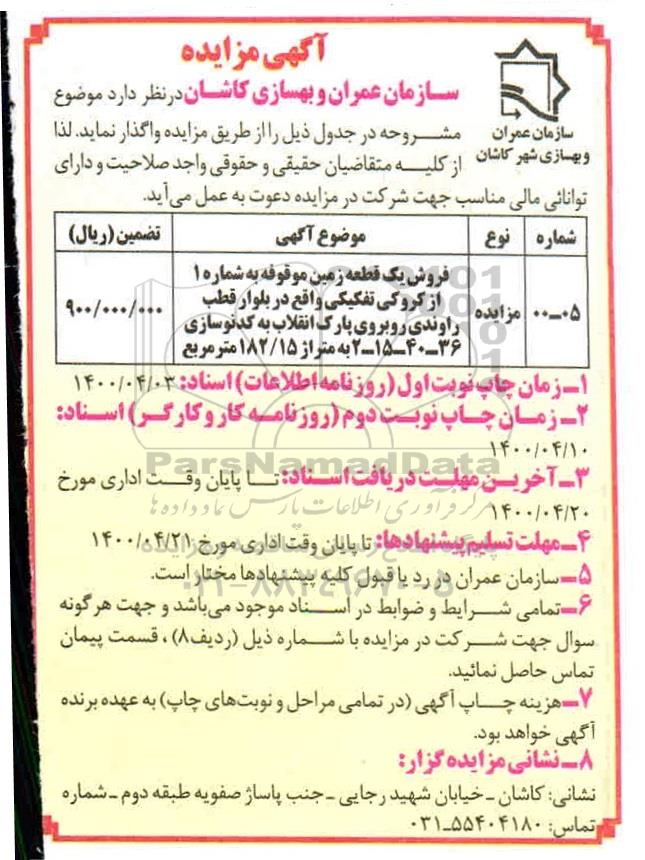 آگهی مزایده
سازمان عمران و بهسازی شهر کاشان
سازمان عمران و بهسازی کاشان درنظر دارد موضوع
مشروحه در جدول ذیل را از طریق مزایده واگذار نماید. لذا
از کلیه متقاضیان حقیقی و حقوقی واجد صلاحیت و دارای
توانائی مالی مناسب جهت شرکت در مزایده دعوت به عمل می‌آید.
شماره نوع موضوع آگهی تضمین (ریال)
فروش یک قطعه زمین موقوفه به شماره ۱
۰۰-۰۵ مزایده از کروکی تفکیکی واقع در بلوار قطب ۹۰۰/۰۰۰/۰۰۰
راوندی روبروی پارک انقلاب به کدنوسازی
۲-۱۵-۴۰-۳۶ به متراژ ۱۸۲/۱۵ مترمربع
۱- زمان چاپ نوبت اول (روزنامه اطلاعات) اسناد: ۱۴۰۰/۰۴/۰۳
۲- زمان چاپ نوبت دوم (روزنامه کار و کارگر) اسناد:
۱۴۰۰/۰۴/۱۰
ParsNamadData
۳- آخرین مهلت دریافت اسناد: تا پایان وقت اداری مورخ
۱۴۰۰/۰۴/۲۰
مرکز فرآوری اطلاعات پارس نماد داده ها
۴- مهلت تسلیم پیشنهادها: تا پایان وقت اداری مورخ ۱۴۰۰/۰۴/۲۱
۵- سازمان عمران در رد یا قبول کلیه پیشنهادها مختار است.
۰۲۱-۸۸۳۴۹۶۷۰-۵
۶- تمامی شرایط و ضوابط در اسناد موجود می‌باشد و جهت هرگونه
سوال جهت شرکت در مزایده با شماره ذیل (ردیف۸)، قسمت پیمان
تماس حاصل نمائید.
۷- هزینه چاپ آگهی (در تمامی مراحل و نوبت‌های چاپ) به عهده برنده
آگهی خواهد بود.
۸- نشانی مزایده گزار:
نشانی: کاشان - خیابان شهید رجایی - جنب پاساژ صفویه طبقه دوم - شماره
تماس: ۰۳۱-۵۵۴۰۴۱۸۰